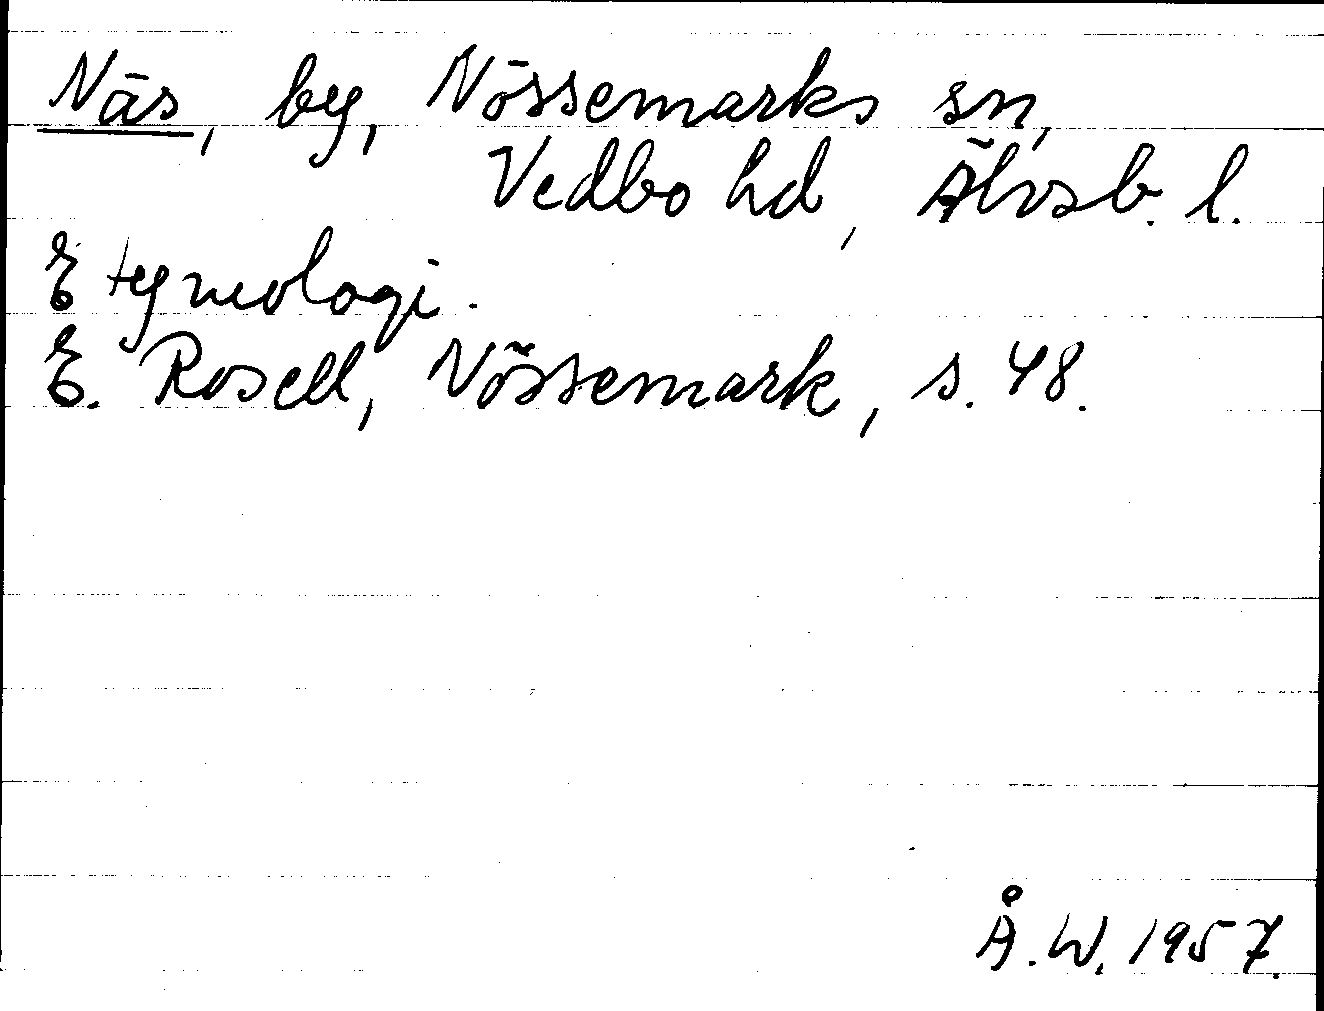 Näs, by, Nössemarks sn,
Vedbo hd, Älvsb. l.
Etymologi.
E. Rosell, Nössemark, s. 48.
Å. W. 1957.